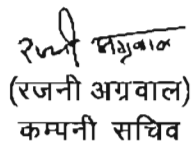 रजनी अग्रवाल
(रजनी अग्रवाल)
कम्पनी सचिव